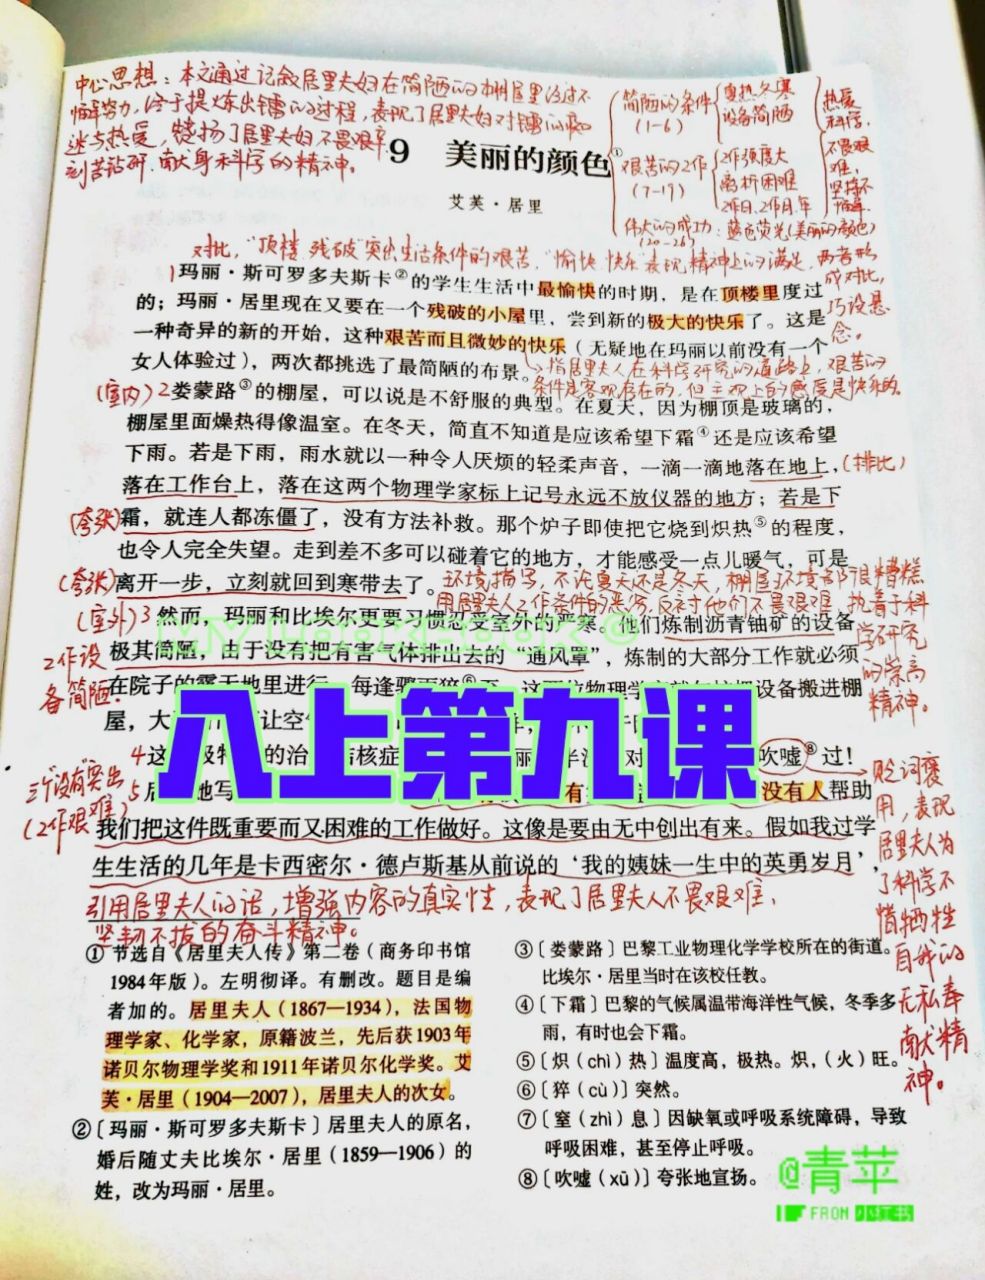 中心思想：本文通过记叙居里夫妇在简陋的棚屋里经过不
懈努力，终于提炼出镭的过程，表现了居里夫妇对镭的痴
迷与热爱，赞扬了居里夫妇不畏艰辛
刻苦钻研、献身科学的精神。
简陋的条件
(1-6)
夏热冬寒
设备简陋
艰苦的工作
(7-19)
工作强度大
离析困难
工作日、工作月、年
伟大的成功：蓝色荧光(美丽的颜色)
(20-26)
热爱
科学，
不畏艰
难，
坚持不
懈
9 美丽的颜色①
艾芙·居里
对比，“顶楼、残破”突出生活条件的艰苦，“愉快、快乐”表现精神上的满足，两者形
成对比，
巧设悬
念。
1玛丽·斯可罗多夫斯卡②的学生生活中最愉快的时期，是在顶楼里度过
的；玛丽·居里现在又要在一个残破的小屋里，尝到新的极大的快乐了。这是
一种奇异的新的开始，这种艰苦而且微妙的快乐（无疑地在玛丽以前没有一个
女人体验过），两次都挑选了最简陋的布景。
指居里夫人在科学研究的道路上，艰苦的
条件是客观存在的，但主观上的感度是快乐的。
(室内)2娄蒙路③的棚屋，可以说是不舒服的典型。在夏天，因为棚顶是玻璃的，
棚屋里面燥热得像温室。在冬天，简直不知道是应该希望下霜④还是应该希望
下雨。若是下雨，雨水就以一种令人厌烦的轻柔声音，一滴一滴地落在地上，(排比)
落在工作台上，落在这两个物理学家标上记号永远不放仪器的地方；若是下
(夸张)霜，就连人都冻僵了，没有方法补救。那个炉子即使把它烧到炽热⑤的程度，
也令人完全失望。走到差不多可以碰着它的地方，才能感受一点儿暖气，可是
(夸张)离开一步，立刻就回到寒带去了。
环境描写，不论夏天还是冬天，棚屋环境都很糟糕
用居里夫人工作条件的恶劣，反衬他们不畏艰难，执着于科
学研究
的崇高
精神。
(室外)3然而，玛丽和比埃尔更要习惯忍受室外的严寒。他们炼制沥青铀矿的设备
极其简陋，由于没有把有害气体排出去的“通风罩”，炼制的大部分工作就必须
工作设
备简陋。
在院子的露天地里进行。每逢骤雨猝⑥至，这两位物理学家就匆忙把设备搬进棚
屋，大
让空
八上第九课
4这
级特
的治
核症
丽
半
对
吹嘘⑧过！
三个“没有”突出
(工作艰难)
5后
她写
有
没有人帮助
我们把这件既重要而又困难的工作做好。这像是要由无中创出有来。假如我过学
生生活的几年是卡西密尔·德卢斯基从前说的‘我的姨妹一生中的英勇岁月’，
贬词褒
用，表现
居里夫人为
了科学不
惜牺牲
自我的
无私奉
献精
神。
引用居里夫人的话，增强内容的真实性，表现了居里夫人不畏艰难、
坚韧不拔的奋斗精神。
①节选自《居里夫人传》第二卷（商务印书馆
1984年版）。左明彻译。有删改。题目是编
者加的。居里夫人（1867—1934），法国物
理学家、化学家，原籍波兰，先后获1903年
诺贝尔物理学奖和1911年诺贝尔化学奖。艾
芙·居里（1904—2007），居里夫人的次女。
②〔玛丽·斯可罗多夫斯卡〕居里夫人的原名，
婚后随丈夫比埃尔·居里（1859—1906）的
姓，改为玛丽·居里。
③〔娄蒙路〕巴黎工业物理化学学校所在的街道。
比埃尔·居里当时在该校任教。
④〔下霜〕巴黎的气候属温带海洋性气候，冬季多
雨，有时也会下霜。
⑤〔炽（chì）热〕温度高，极热。炽，（火）旺。
⑥〔猝（cù）〕突然。
⑦〔窒（zhì）息〕因缺氧或呼吸系统障碍，导致
呼吸困难，甚至停止呼吸。
⑧〔吹嘘（xū）〕夸张地宣扬。
@青苹
FROM 小红书